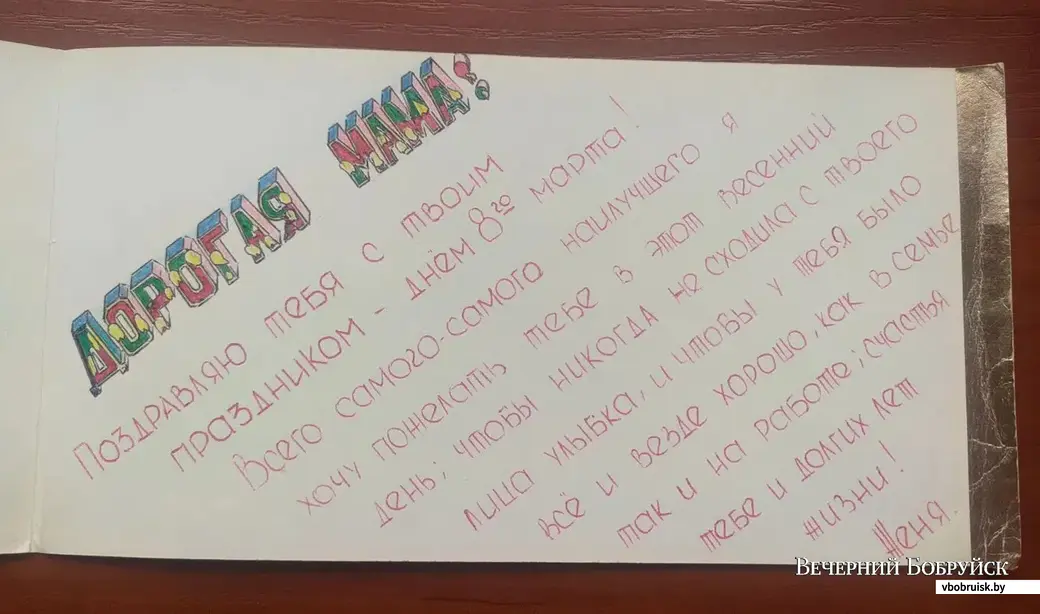 ДОРОГАЯ МАМА!
Поздравляю тебя с твоим
праздником - днём 8го марта!
Всего самого-самого наилучшего я
хочу пожелать тебе в этот весенний
день; чтобы никогда не сходила с твоего
лица улыбка, и чтобы у тебя было
всё и везде хорошо, как в семье
так и на работе; счастья
тебе и долгих лет
жизни!
Женя.
Вечерний Бобруйск
vbobruisk.by